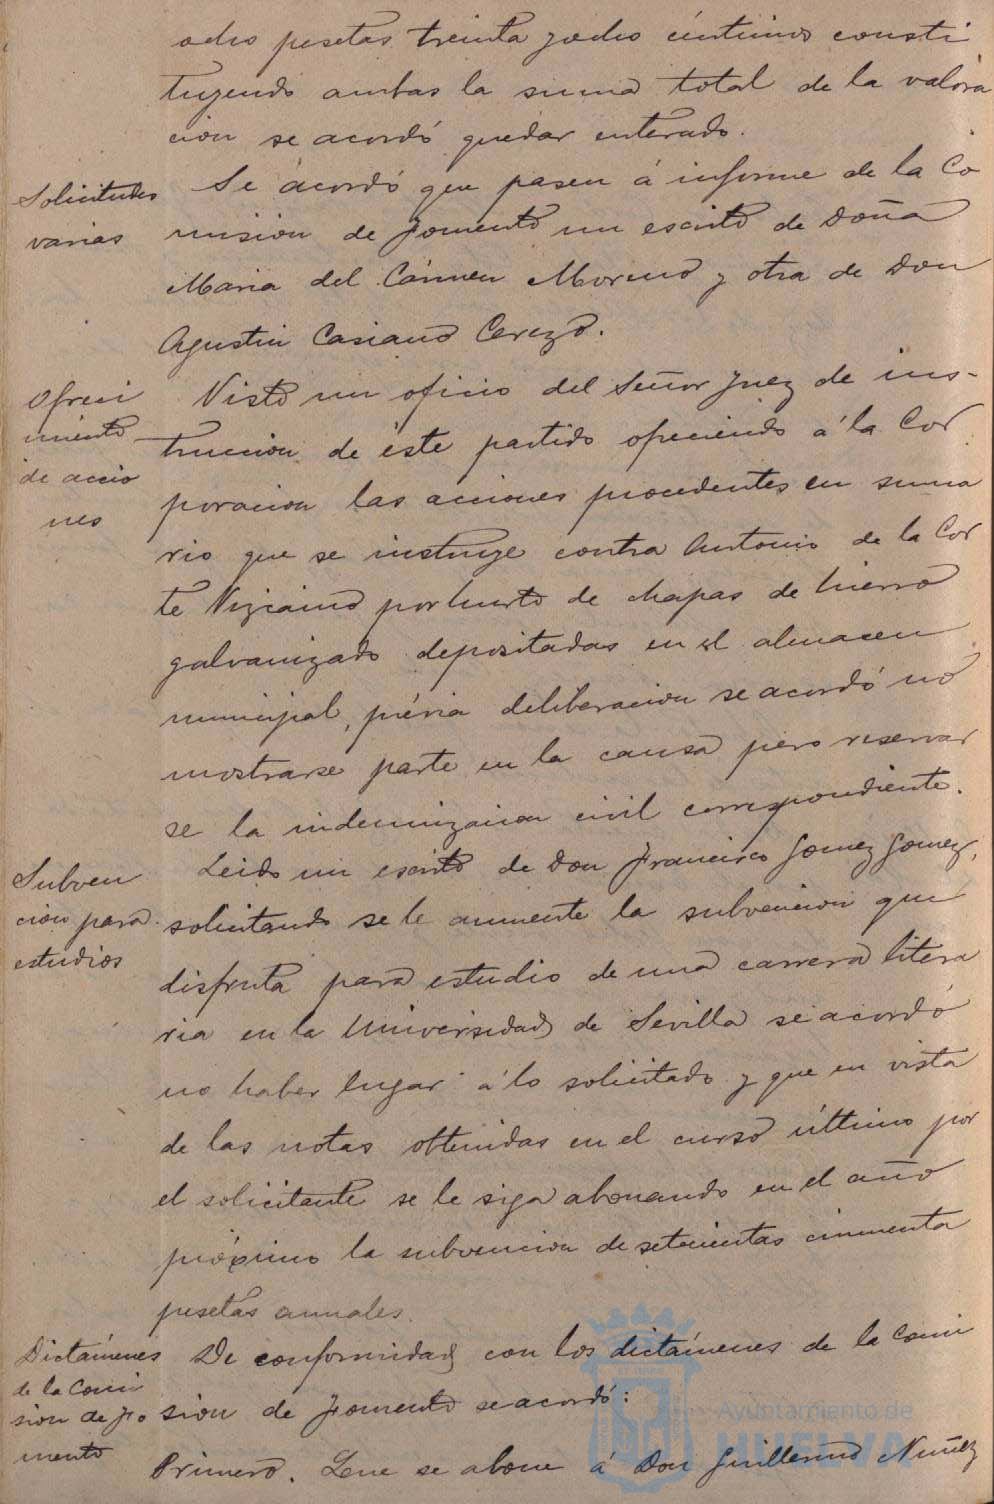 ocho pesetas treinta y ocho céntimos consti
tuyendo ambas la suma total de la valora
cion se acordó quedar enterado.
Solicitudes
varias
Se acordó que pasen á informe de la Co
mision de Fomento un escrito de Doña
Maria del Cármen Moreno y otra de Don
Agustin Casiano Cerezo.
Ofreci
miento
de accio
nes
Visto un oficio del Señor Juez de ins-
truccion de éste partido ofreciendo á la Cor
poracion las acciones procedentes en suma
rio que se instruye contra Antonio de la Cor
te Vizcaino por hurto de chapas de hierro
galvanizado depositadas en el almacen
municipal, prévia deliberacion se acordó no
mostrarse parte en la causa pero reservar
se la indemnizacion civil correspondiente.
Subven
cion para
estudios
Leido un escrito de Don Francisco Gomez Gomez,
solicitando se le aumente la subvencion que
disfruta para estudio de una carrera litera
ria en la Universidad de Sevilla se acordó
no haber lugar á lo solicitado y que en vista
de las notas obtenidas en el curso último por
el solicitante se le siga abonando en el año
próximo la subvencion de setecientas cincuenta
pesetas anuales.
Dictámenes
de la Comi
sion de Fo
mento
De conformidad con los dictámenes de la Comi
sion de Fomento se acordó:
Primero. Que se abone á Don Guillermo Nuñez
Ayuntamiento de
HUELVA